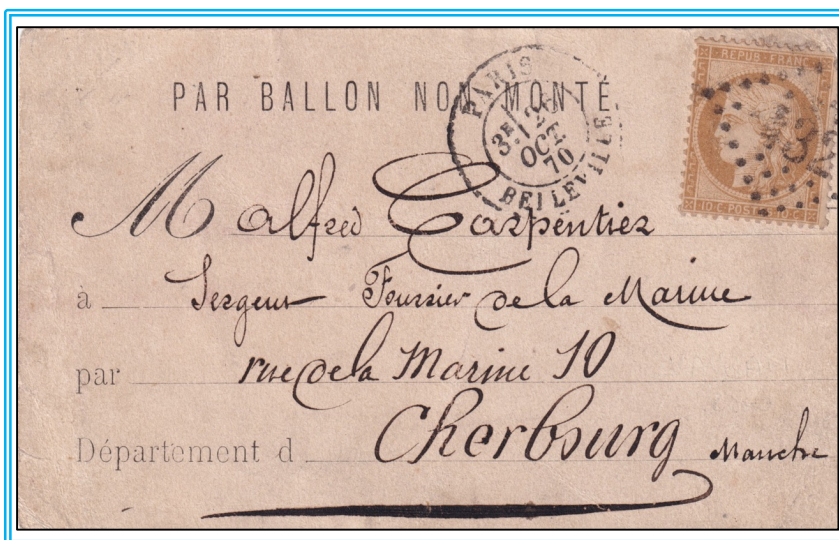 PAR BALLON NON MONTÉ
PARIS
3E / 2
OCT
70
BELLEVILLE
REPUB. FRANC.
10 C. POSTES 10 C.
M Alfred Carpentier
à Sergent Fourrier de la Marine
par rue de la Marine 10
Département d Cherbourg Manche